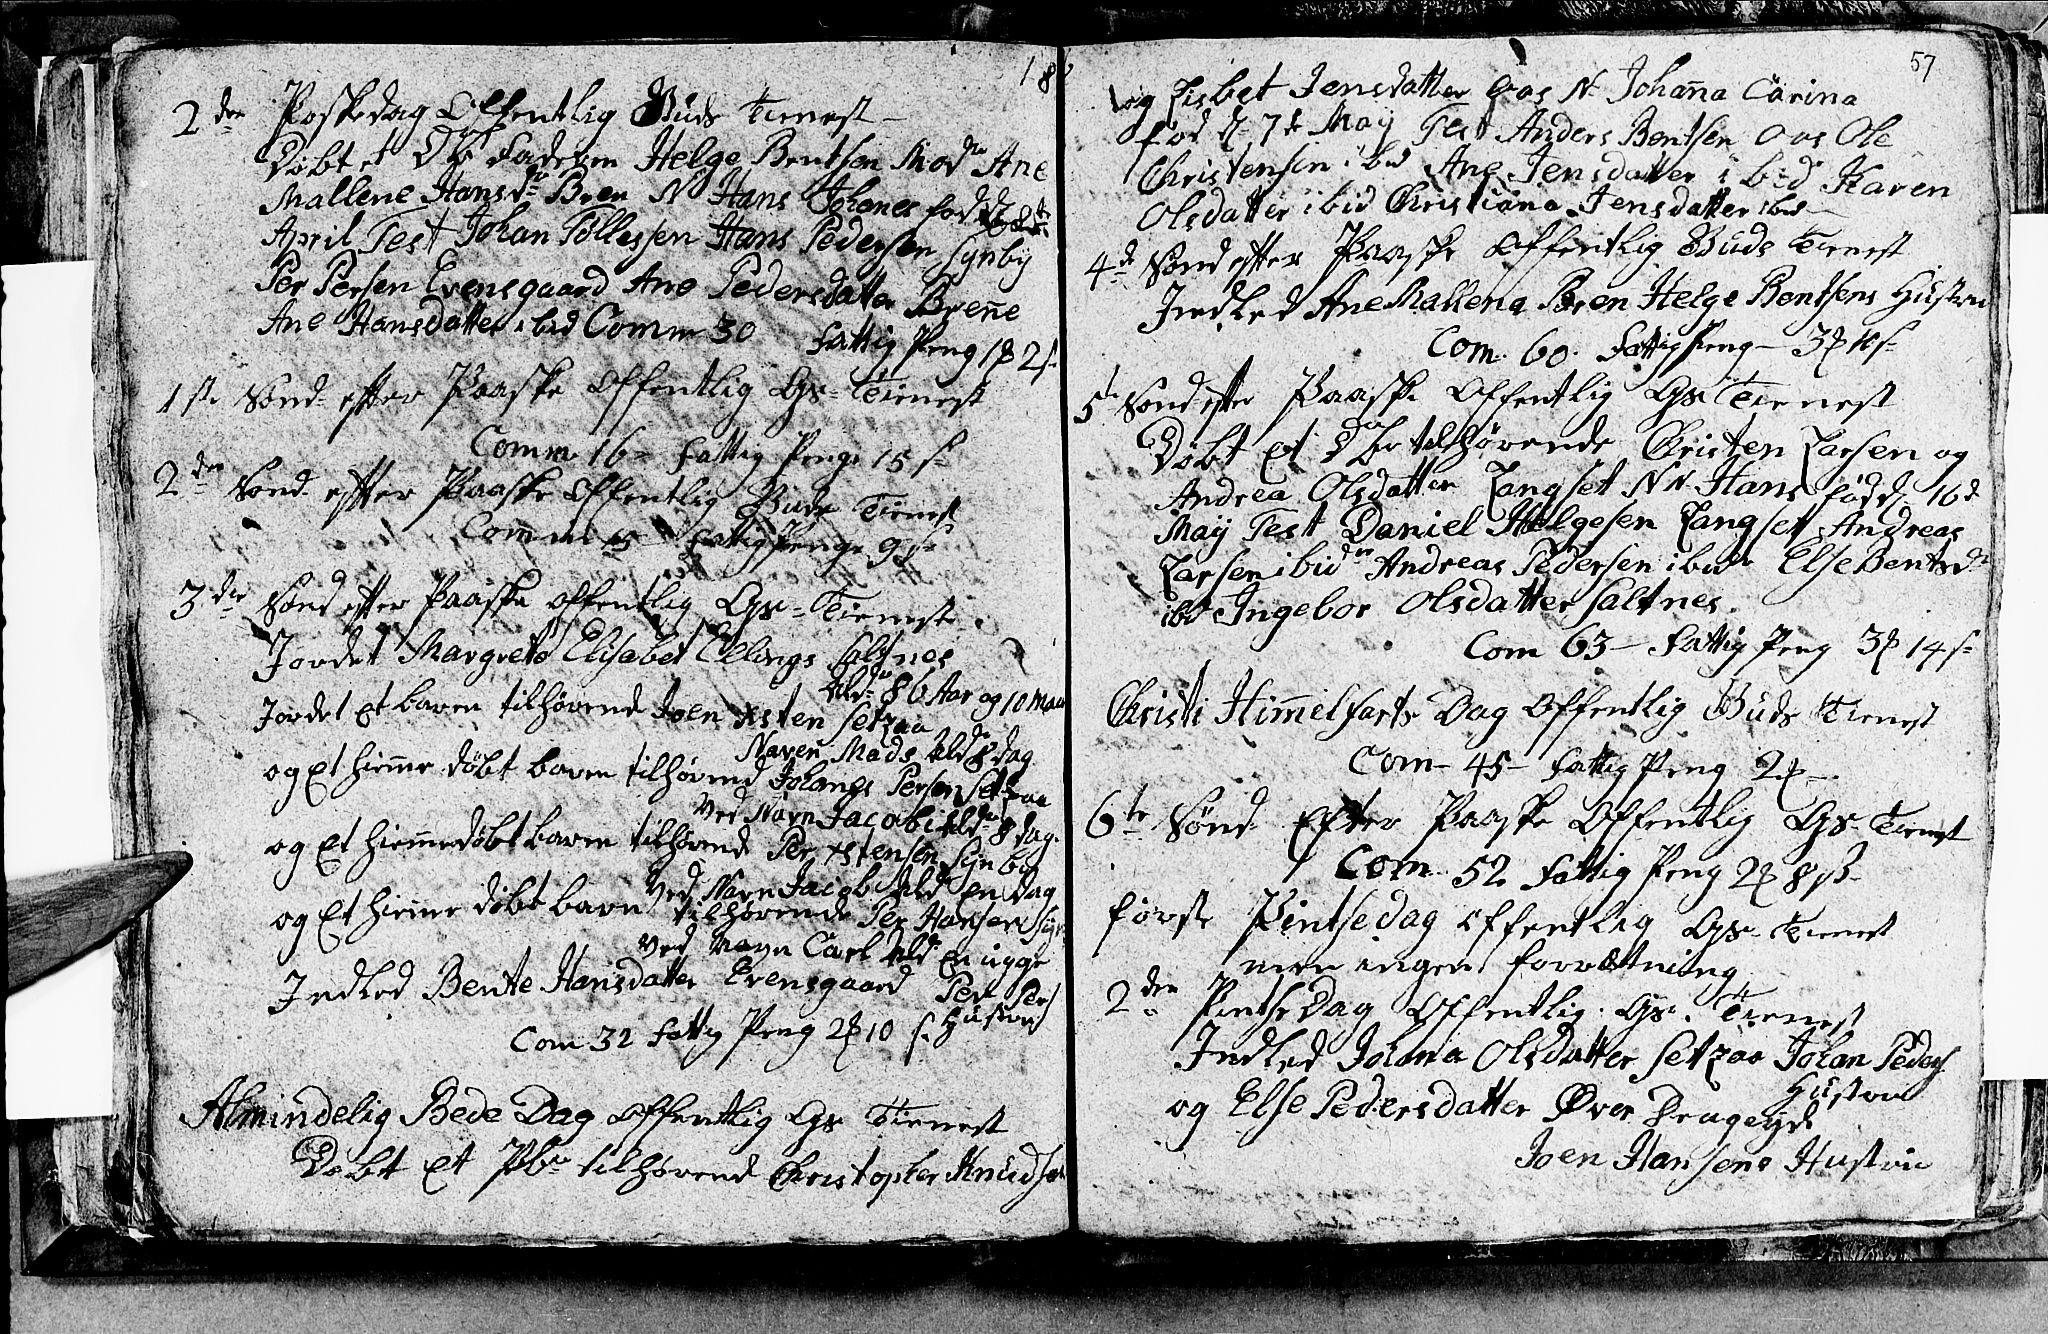 18
2den Poskedag Offentlig Guds Tienest
Døbt et DB Faderen Helge Bentsen Mod Ane
Mallene Hansdr Bren N Hans Johanes fød
April Test Johan Tollessen Hans Pedersen Synbÿ
Per Persen Evensgaard Ane Pedersdatter Brene
Ane Hansdatter ibid Comm 30 Fattig Peng 1 2 s
1ste Sønd efter Paaske Offentlig Gs Tienest
Comm 16 Fattig Penge 15 s
2den Sønd efter Paaske Offentlig Guds Tienest
Comm Fattig Penge 9 s
3die Sønd efter Paaske offentlig Gs Tienest
Jordet Margrete Elisabet Ellings Saltnes
Ald 86 Aar og 10 Maan
Jordet et baren tilhørende Joen xsten Setzaa
Naven Mads Ald 8 dag
og Et hiemme døbt baren tilhørend Johanes Persen Setzaa
Ved Navn Jacob Ald 8 dag
og Et hiemmedøbt baren tilhørend Per xstensen Synby
Ved Navn Jacob Ald en Dag
og Et hiemme døbt barn tilhørende Per Hansen Syn
Ved Navn Carl Ald En uge
Indled Bente Hansdatter Evensgaard Per Pers
Hustru
Com 32 Fattig Peng 2 10 s
Almindelig Bede Dag Offentlig Gs Tienest
Døbt Et Pb tilhørend Christopher Knudsen
57
og Lisbet Jensdatter Aas N Johana Carina
fød d 7de Maÿ Test Anders Bentsen Aas Ole
Christensen ibid Ane Jensdatter ibid Karen
Olsdatter ibid Christiana Jensdatter ibid
4de Sønd efter Paaske Offentlig Guds Tienest
Indled Ane Mallena Bren Helge Bentsens Hustrue
Com. 60. Fattig Peng 3 10 s
5te Sønd efter Paaske Offentlig Gs Tienest
Døbt Et db tilhørende Christen Larsen og
Andrea Olsdatter Langset NN Hans fød d 16d
Maÿ Test Daniel Helgesen Langset Andreas
Larsen ibid Andreas Pedersen ibid Else Bentsdr
ibd Ingebor Olsdatter Saltnes.
Com 63 Fattig Peng 3 14 s
Christi Himelfarts Dag Offentlig Guds Tienest
Com 45 Fattig Peng 2
6te Sønd Efter Paaske Offentlig Gs Tienest
Com 52 Fattig Peng 2 8 s
første Pintsedag Offentlig Gs Tienest
men ingen forretning
2den Pintse Dag Offentlig Gs Tienest
Indled Johna Olsdatter Setzaa Johan Peders
Hustrue
og Else Pedersdatter Øver Drageÿd
Joen Hansens Hustrue